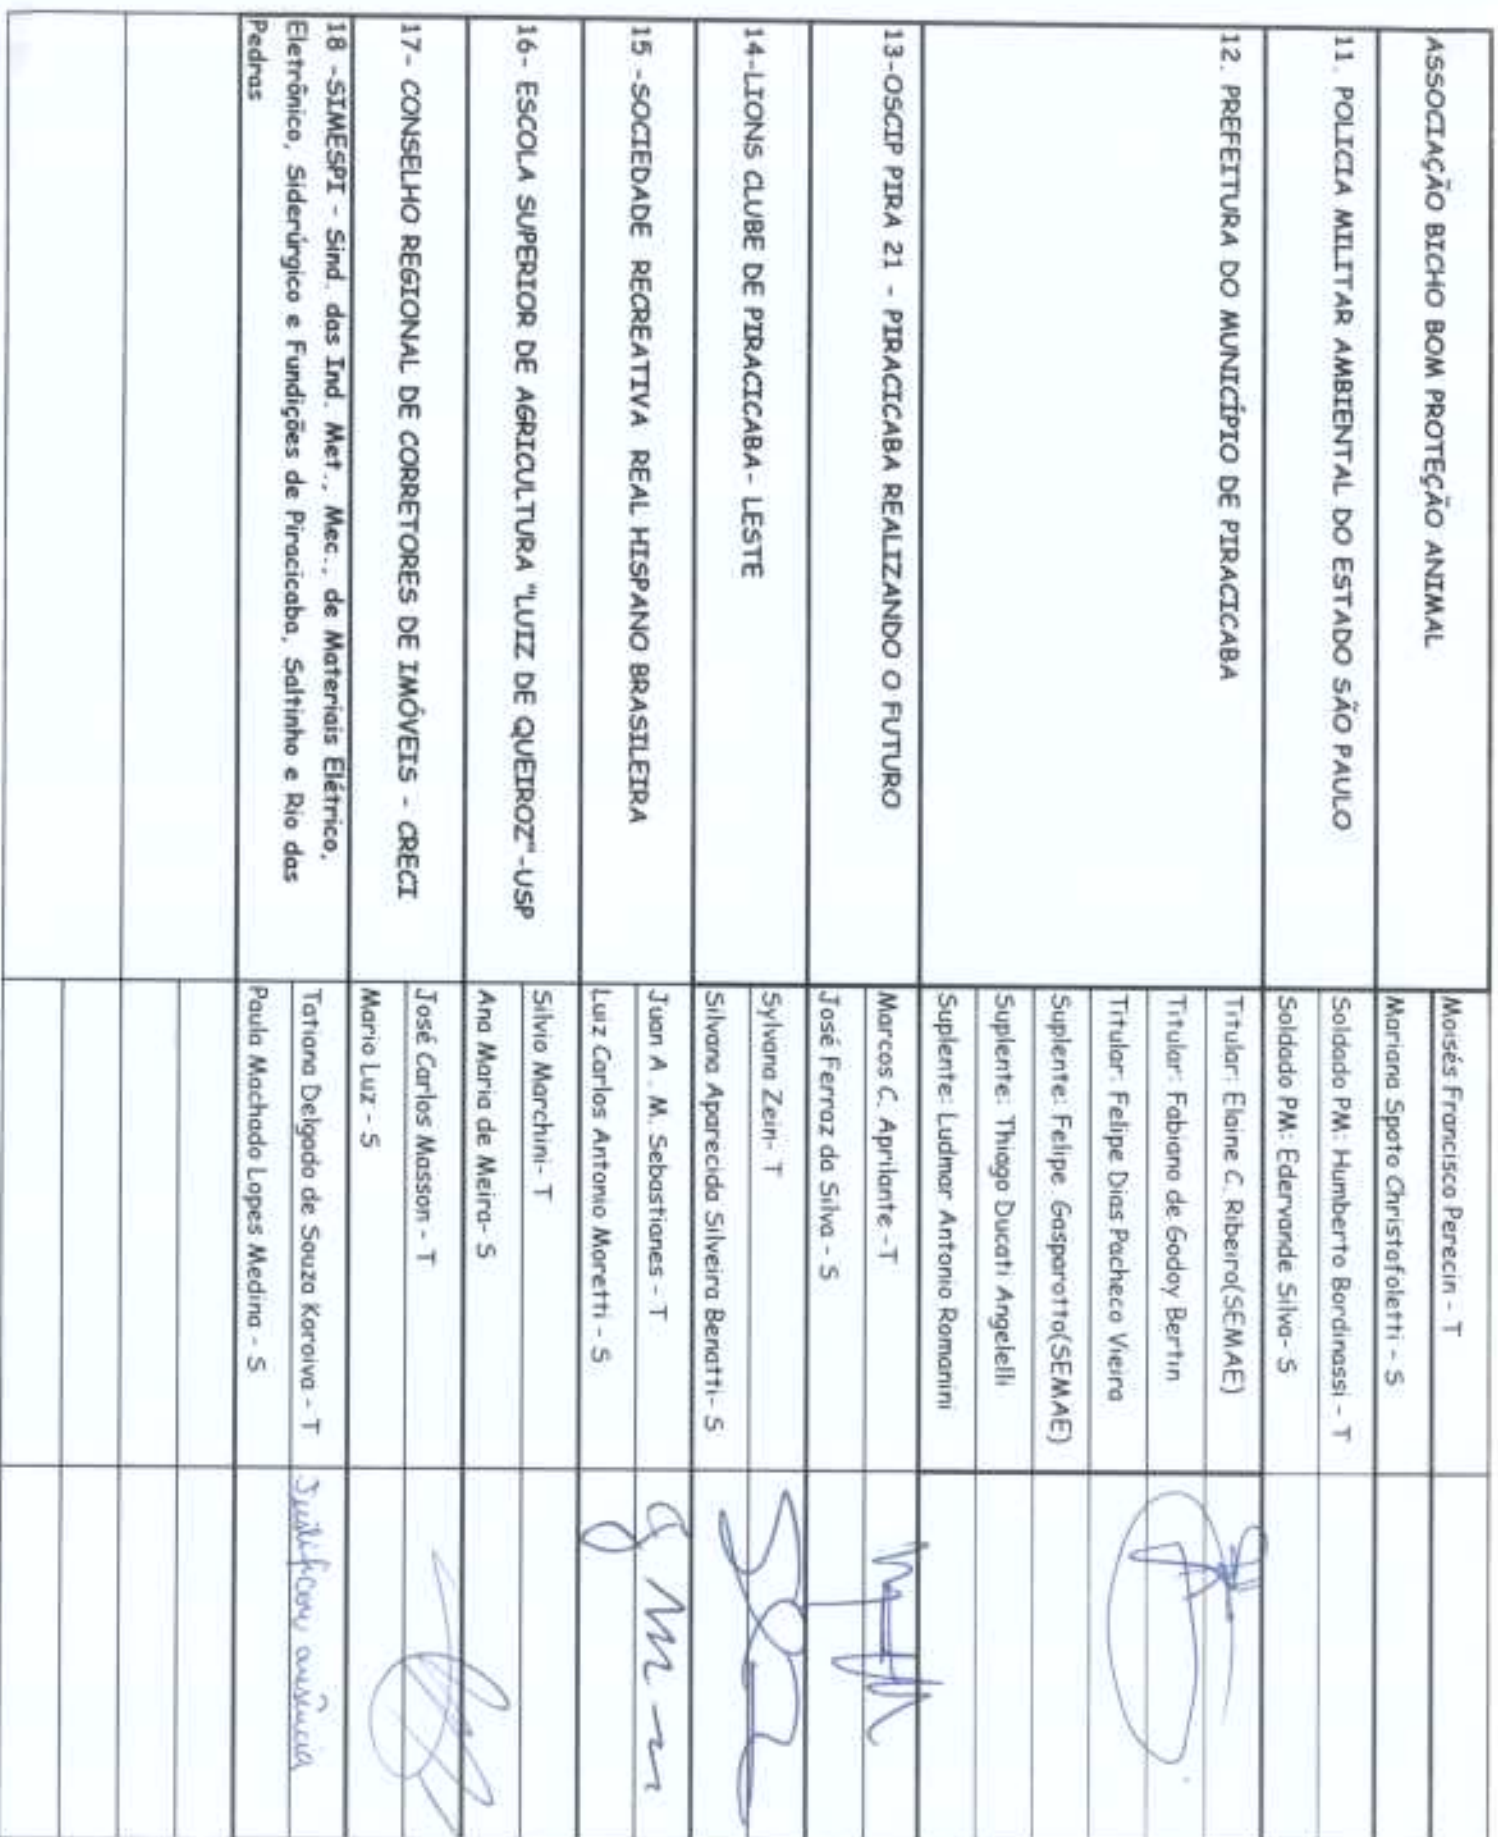 ASSOCIAÇÃO BICHO BOM PROTEÇÃO ANIMAL
Moisés Francisco Perecin - T
Mariana Spoto Christofoletti - S
11. POLICIA MILITAR AMBIENTAL DO ESTADO SÃO PAULO
Soldado PM: Humberto Bordinassi - T
Soldado PM: Edervande Silva- S
12. PREFEITURA DO MUNICÍPIO DE PIRACICABA
Titular: Elaine C. Ribeiro(SEMAE)
Titular: Fabiano de Godoy Bertin
Titular: Felipe Dias Pacheco Vieira
Suplente: Felipe Gasparotto(SEMAE)
Suplente: Thiago Ducati Angelelli
Suplente: Ludmar Antonio Romanini
13-OSCIP PIRA 21 - PIRACICABA REALIZANDO O FUTURO
Marcos C. Aprilante -T
José Ferraz da Silva - S
14-LIONS CLUBE DE PIRACICABA- LESTE
Sylvana Zein- T
Silvana Aparecida Silveira Benatti- S
15 -SOCIEDADE RECREATIVA REAL HISPANO BRASILEIRA
Juan A . M. Sebastianes - T
Luiz Carlos Antonio Moretti - S
16- ESCOLA SUPERIOR DE AGRICULTURA "LUIZ DE QUEIROZ"-USP
Silvio Marchini- T
Ana Maria de Meira- S
17- CONSELHO REGIONAL DE CORRETORES DE IMÓVEIS - CRECI
José Carlos Masson - T
Mario Luz - S
18 -SIMESPI - Sind. das Ind. Met., Mec., de Materiais Elétrico,
Eletrônico, Siderúrgico e Fundições de Piracicaba, Saltinho e Rio das
Pedras
Tatiana Delgado de Souza Koroiva - T
Justificou ausência
Paula Machado Lopes Medina - S